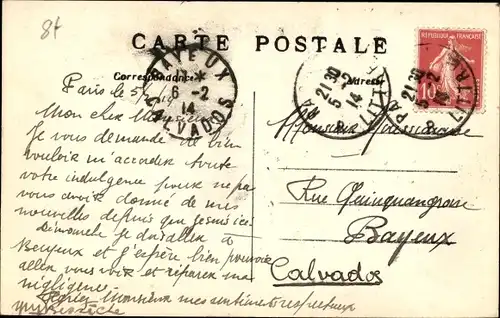 8f
CARTE POSTALE
Correspondance
Adresse
BAYEUX
6-2
14
CALVADOS
21 30
5-2
14
PARIS
R. LITTRE
REPUBLIQUE FRANÇAISE
10
Paris le 5/2/14
Mon cher Monsieur
Je vous demande de bien
vouloir m'accorder toute
votre indulgence pour ne pas
vous avoir donné de mes
nouvelles depuis que je suis ici
Dimanche je dois aller à
Bayeux et j'espère bien pouvoir
aller vous voir et réparer ma
négligence.
Monsieur mes sentiments respectueux
Monsieur
Rue Quinquangrone
Bayeux
Calvados